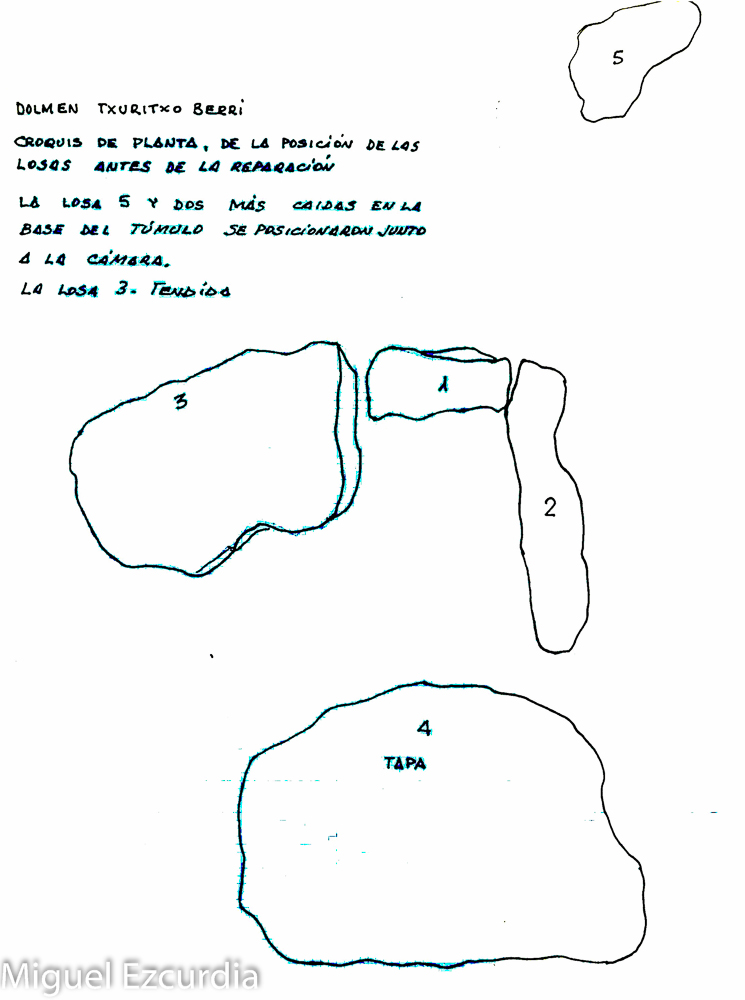 5
DOLMEN TXURITXO BERRI
CROQUIS DE PLANTA, DE LA POSICIÓN DE LAS
LOSAS ANTES DE LA REPARACIÓN
LA LOSA 5 Y DOS MÁS CAIDAS EN LA
BASE DEL TÚMULO SE POSICIONARON JUNTO
A LA CÁMARA.
LA LOSA 3- TENDIDA
3
1
2
4
TAPA
Miguel Ezcurdia